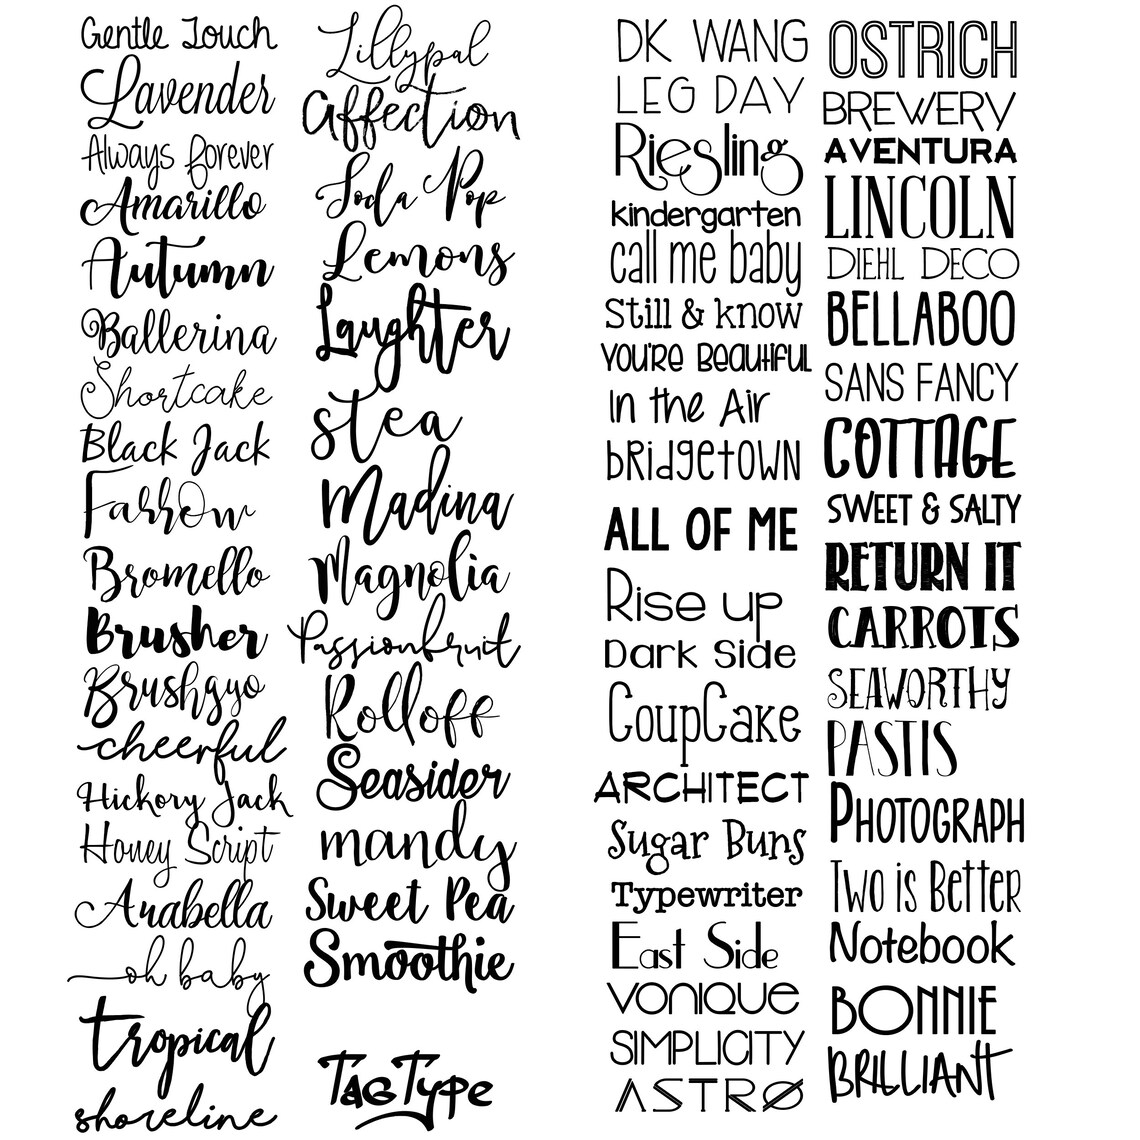 Gentle Touch
Lavender
Always forever
Amarillo
Autumn
Ballerina
Shortcake
Black Jack
Farrow
Bromello
Brusher
Brushgyo
cheerful
Hickory Jack
Honey Script
Anabella
oh baby
tropical
shoreline
Lillypal
Affection
Soda Pop
Lemons
Laughter
stea
Madina
Magnolia
Passionfruit
Rolloff
Seasider
mandy
Sweet Pea
Smoothie
TagType
DK WANG
LEG DAY
Riesling
kindergarten
call me baby
Still & know
You're Beautiful
In the Air
bridgetown
ALL OF ME
Rise up
Dark Side
CoupCake
ARCHITECT
Sugar Buns
Typewriter
East Side
VONIQUE
SIMPLICITY
ASTRO
OSTRICH
BREWERY
AVENTURA
LINCOLN
DIEHL DECO
BELLABOO
SANS FANCY
COTTAGE
SWEET & SALTY
RETURN IT
CARROTS
SEAWORTHY
PASTIS
PHOTOGRAPH
Two is Better
Notebook
BONNIE
BRILLIANT